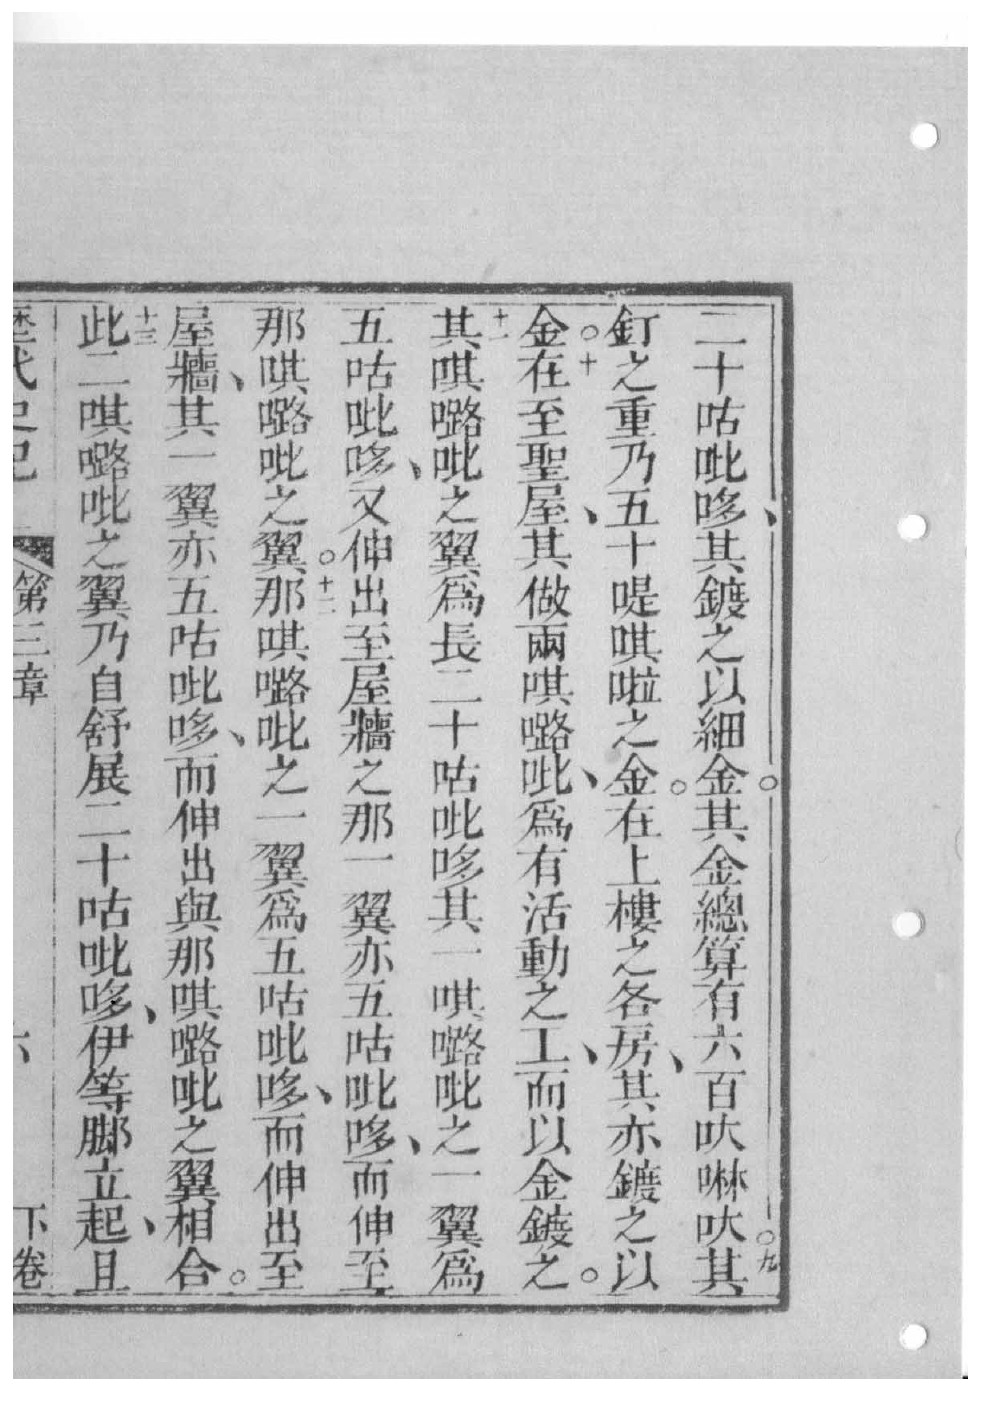 二十咕吡哆、其鍍之以細金。其金總算有六百吠啉吠。九其
釘之重乃五十喔唭啦之金。在上樓之各房、其亦鍍之以
金。十在至聖屋、其做兩唭嚕吡、爲有活動之工、而以金鍍之。
十一其唭嚕吡之翼爲長二十咕吡哆其一唭嚕吡之一翼爲
五咕吡哆、又伸出至屋牆之那一翼亦五咕吡哆、而伸至
那唭嚕吡之翼。十二那唭嚕吡之一翼爲五咕吡哆、而伸出至
屋牆、其一翼亦五咕吡哆、而伸出與那唭嚕吡之翼相合。
十三此二唭嚕吡之翼乃自舒展二十咕吡哆、伊等脚立起、且
歷代史記 第三章 六 下卷